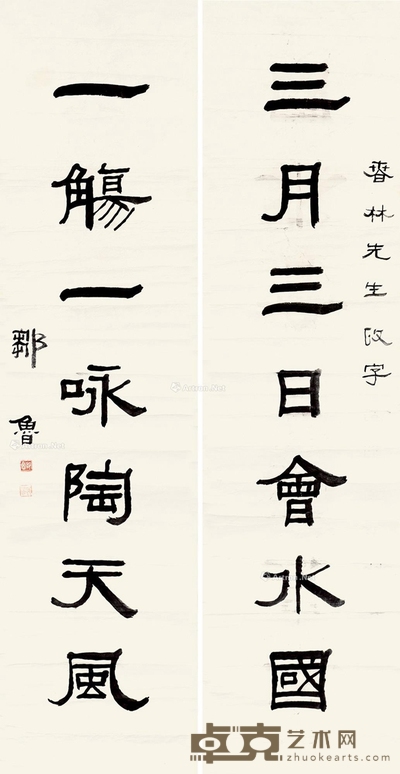 春林先生政字
三月三日會水國
一觴一咏陶天風
鄒魯
卓克艺术网
zhuokearts.com